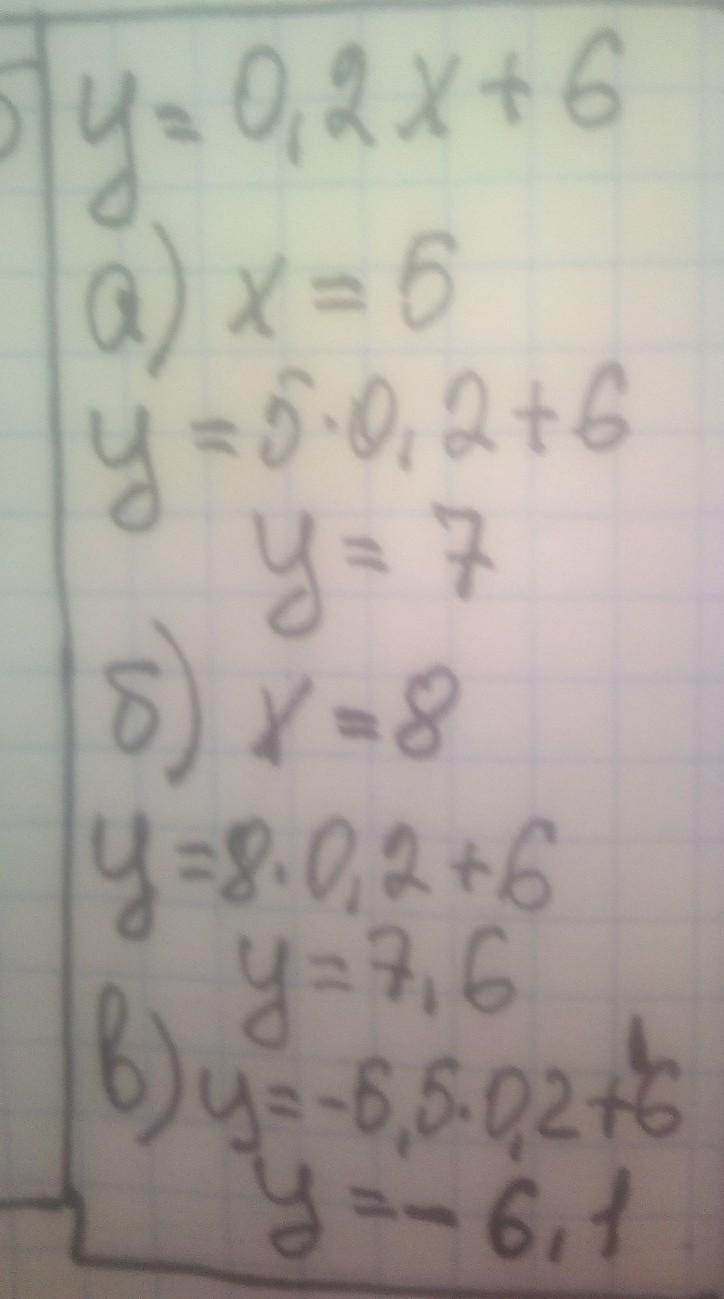 y = 0,2 x + 6
а) x = 5
y = 5 · 0,2 + 6
y = 7
б) x = 8
y = 8 · 0,2 + 6
y = 7,6
в) y = -5,5 · 0,2 + 6
y = - 6,1